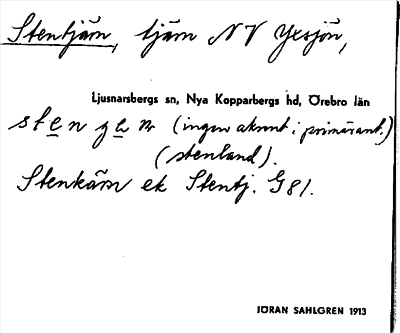 Stentjärn, tjärn NV Yxsjön,
Ljusnarsbergs sn, Nya Kopparbergs hd, Örebro län
(ingen akcent i primärant.)
(stenland).
Stenkärn ek Stentj. G 81.
JÖRAN SAHLGREN 1913